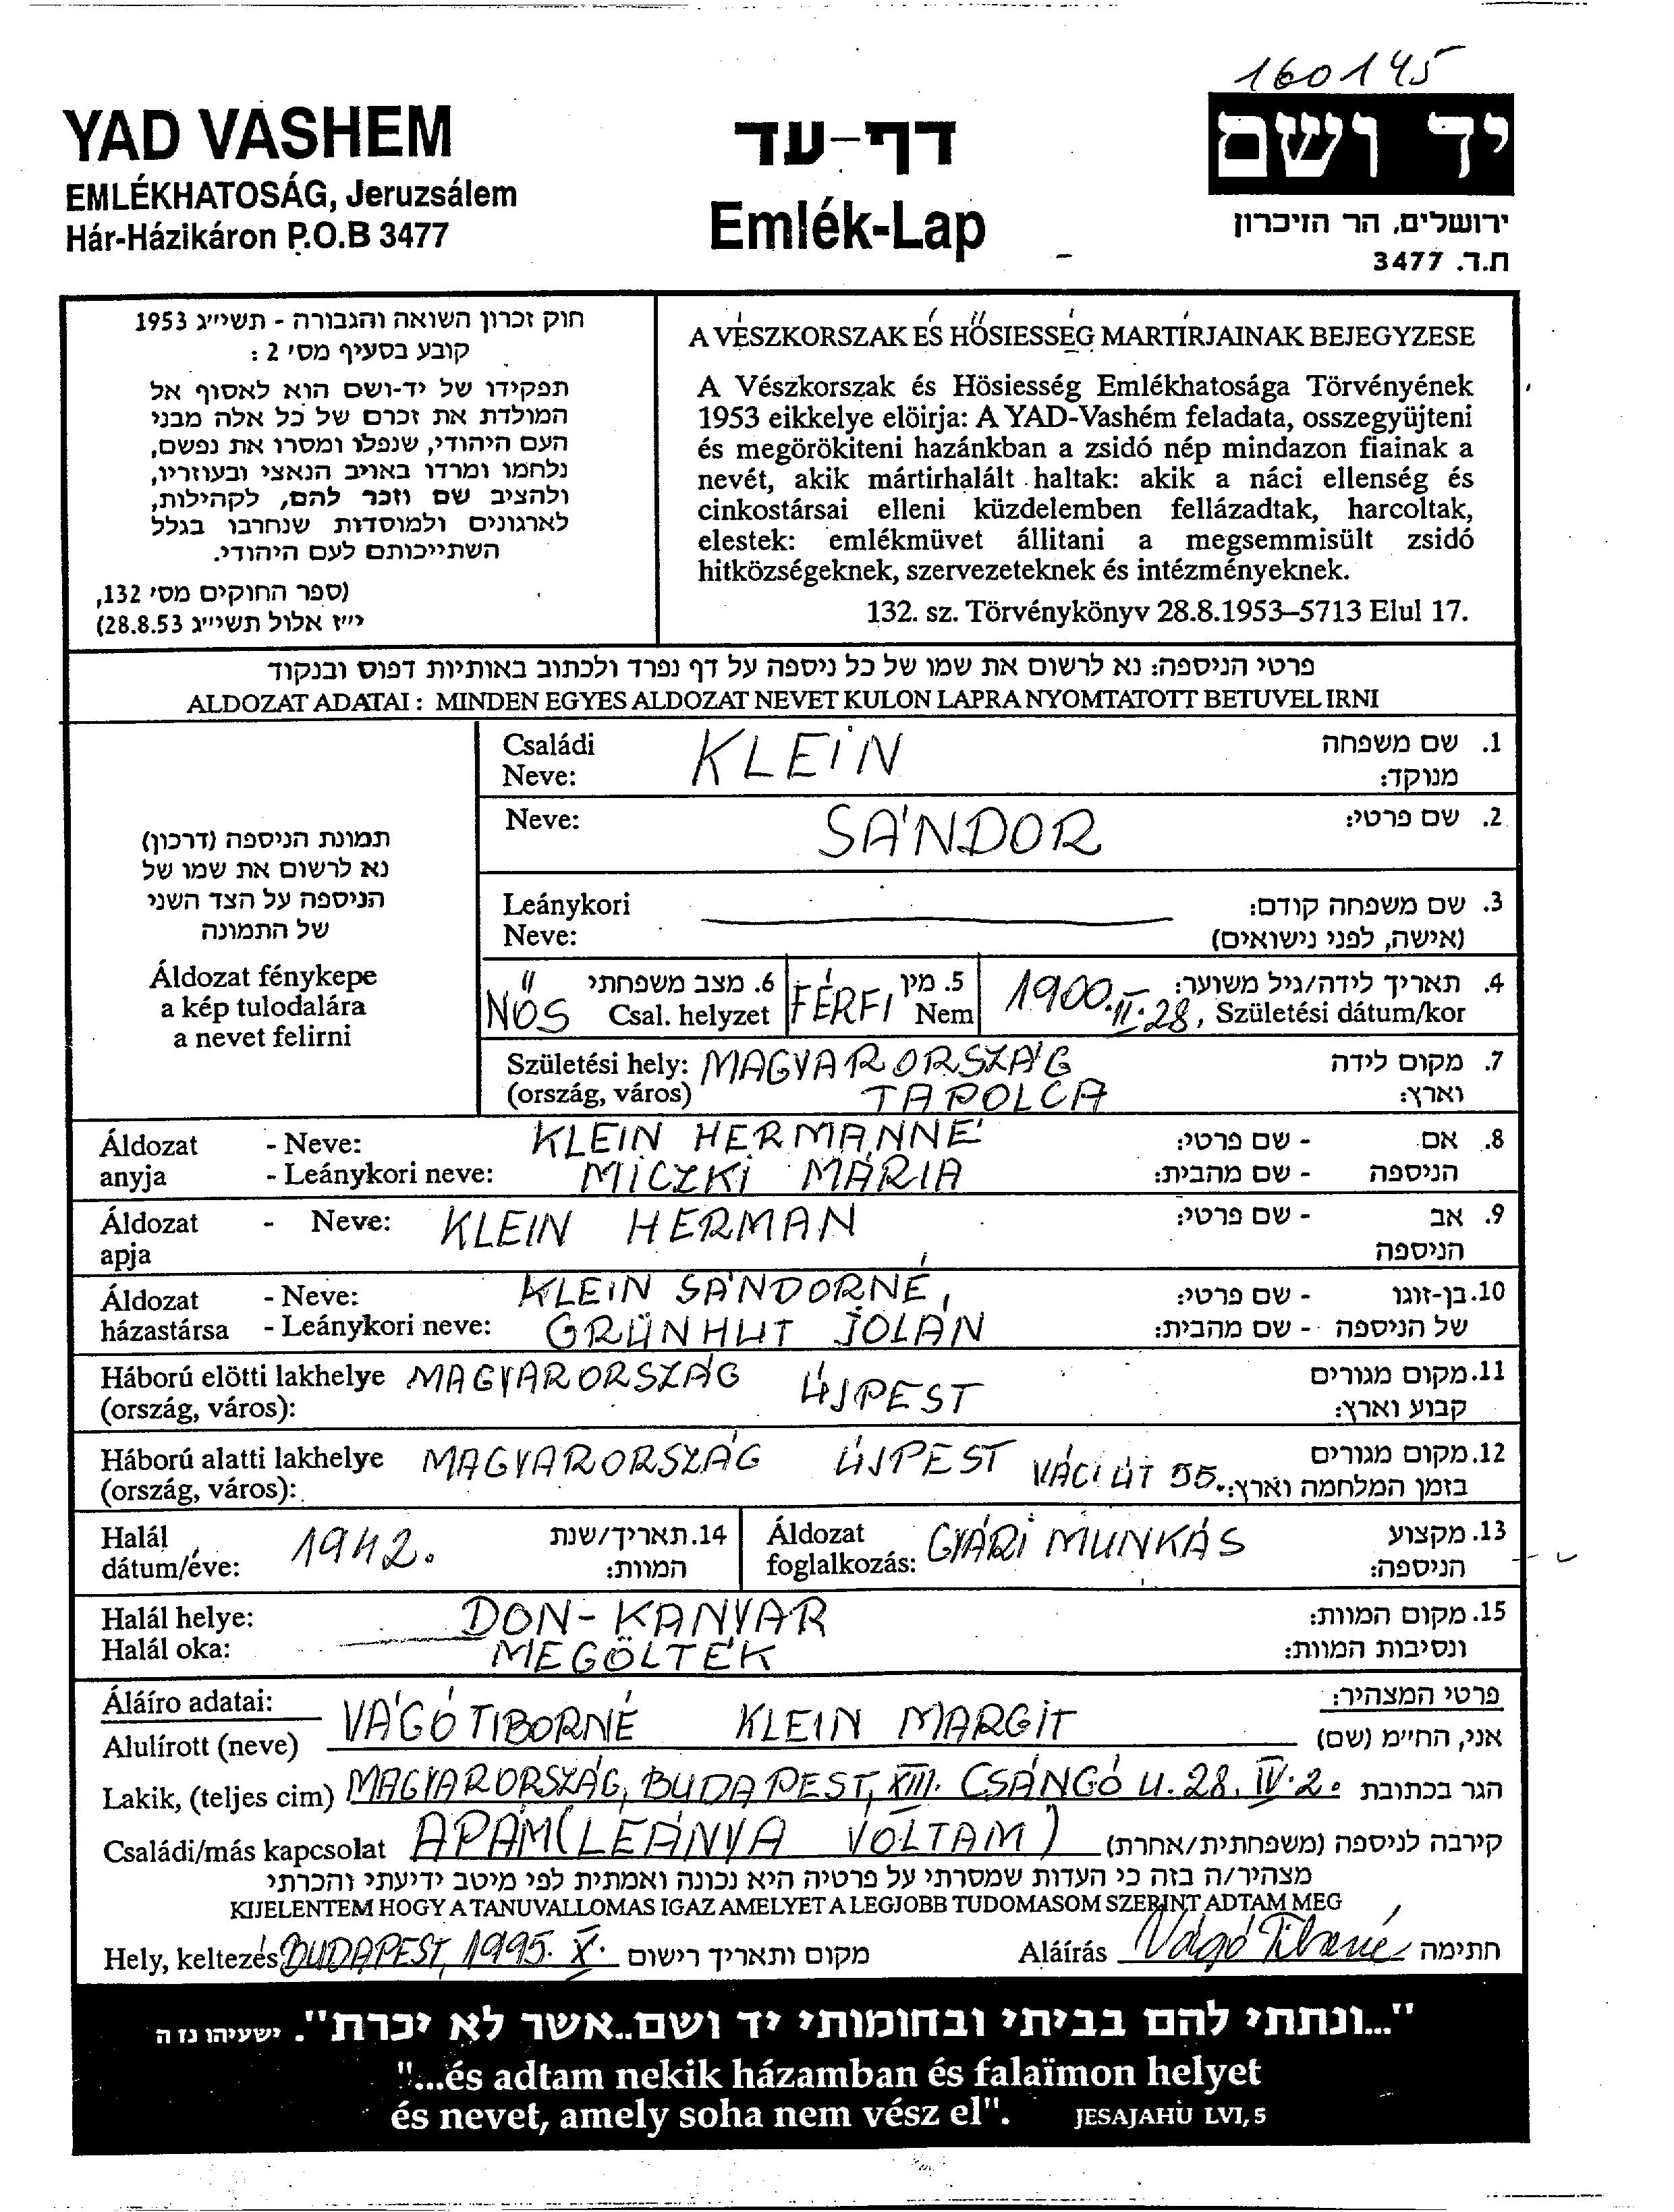 160145
YAD VASHEM
EMLÉKHATOSÁG, Jeruzsálem
Hár-Házikáron P.O.B 3477
דף-עד
Emlék-Lap
יד ושם
ירושלים, הר הזיכרון
ת.ד. 3477
חוק זכרון השואה והגבורה - תשי״ג 1953
קובע בסעיף מס׳ 2 :
תפקידו של יד-ושם הוא לאסוף אל
המולדת את זכרם של כל אלה מבני
העם היהודי, שנפלו ומסרו את נפשם,
נלחמו ומרדו באויב הנאצי ובעוזריו,
ולהציב שם וזכר להם, לקהילות,
לארגונים ולמוסדות שנחרבו בגלל
השתייכותם לעם היהודי.
(ספר החוקים מס׳ 132,
י״ז אלול תשי״ג 28.8.53)
A VÉSZKORSZAK ÉS HŐSIESSÉG MARTÍRJAINAK BEJEGYZESE
A Vészkorszak és Hösiesség Emlékhatosága Törvényének
1953 eikkelye elöirja: A YAD-Vashém feladata, osszegyüjteni
és megörökiteni hazánkban a zsidó nép mindazon fiainak a
nevét, akik mártirhalált haltak: akik a náci ellenség és
cinkostársai elleni küzdelemben fellázadtak, harcoltak,
elestek: emlékmüvet állitani a megsemmisült zsidó
hitközségeknek, szervezeteknek és intézményeknek.
132. sz. Törvénykönyv 28.8.1953–5713 Elul 17.
פרטי הניספה: נא לרשום את שמו של כל ניספה על דף נפרד ולכתוב באותיות דפוס ובנקוד
ALDOZAT ADATAI : MINDEN EGYES ALDOZAT NEVET KULON LAPRA NYOMTATOTT BETUVEL IRNI
תמונת הניספה (דרכון)
נא לרשום את שמו של
הניספה על הצד השני
של התמונה
Áldozat fénykepe
a kép tulodalára
a nevet felirni
Családi KLEIN 1. שם משפחה
Neve: מנוקד:
Neve: SÁNDOR 2. שם פרטי:
Leánykori 3. שם משפחה קודם:
Neve: (אישה, לפני נישואים)
NŐS 6. מצב משפחתי FÉRFI 5. מין 1900.II.28. 4. תאריך לידה/גיל משוער:
Csal. helyzet Nem Születési dátum/kor
Születési hely: MAGYARORSZÁG 7. מקום לידה
(ország, város) TAPOLCA וארץ:
Áldozat - Neve: KLEIN HERMANNÉ - שם פרטי: 8. אם
anyja - Leánykori neve: MICZKI MÁRIA - שם מהבית: הניספה
Áldozat - Neve: KLEIN HERMAN - שם פרטי: 9. אב
apja הניספה
Áldozat - Neve: KLEIN SÁNDORNÉ, - שם פרטי: 10. בן-זוגו
házastársa - Leánykori neve: GRÜNHUT JOLÁN - שם מהבית: של הניספה
Háború elötti lakhelye MAGYARORSZÁG ÚJPEST 11. מקום מגורים
(ország, város): קבוע וארץ:
Háború alatti lakhelye MAGYARORSZÁG ÚJPEST VÁCI ÚT 55. 12. מקום מגורים
(ország, város): בזמן המלחמה וארץ:
Halál 1942. 14. תאריך/שנת Áldozat GYÁRI MUNKÁS 13. מקצוע
dátum/éve: המוות: foglalkozás: הניספה:
Halál helye: DON-KANYAR 15. מקום המוות:
Halál oka: MEGÖLTÉK ונסיבות המוות:
Áláíro adatai: פרטי המצהיר:
Alulírott (neve) VÁGÓ TIBORNÉ KLEIN MARGIT אני, החי״מ (שם)
Lakik, (teljes cim) MAGYARORSZÁG, BUDAPEST, XIII. CSÁNGÓ U. 28. IV. 2. הגר בכתובת
Családi/más kapcsolat APÁM (LEÁNYA VOLTAM) קירבה לניספה (משפחתית/אחרת)
מצהיר/ה בזה כי העדות שמסרתי על פרטיה היא נכונה ואמתית לפי מיטב ידיעתי והכרתי
KIJELENTEM HOGY A TANUVALLOMAS IGAZ AMELYET A LEGJOBB TUDOMASOM SZERINT ADTAM MEG
Hely, keltezés BUDAPEST, 1995. X. מקום ותאריך רישום Aláírás Vágó Tiborné חתימה
"...ונתתי להם בביתי ובחומותי יד ושם..אשר לא יכרת". ישעיהו נז ה
"...és adtam nekik házamban és falaïmon helyet
és nevet, amely soha nem vész el". JESAJAHÙ LVI, 5